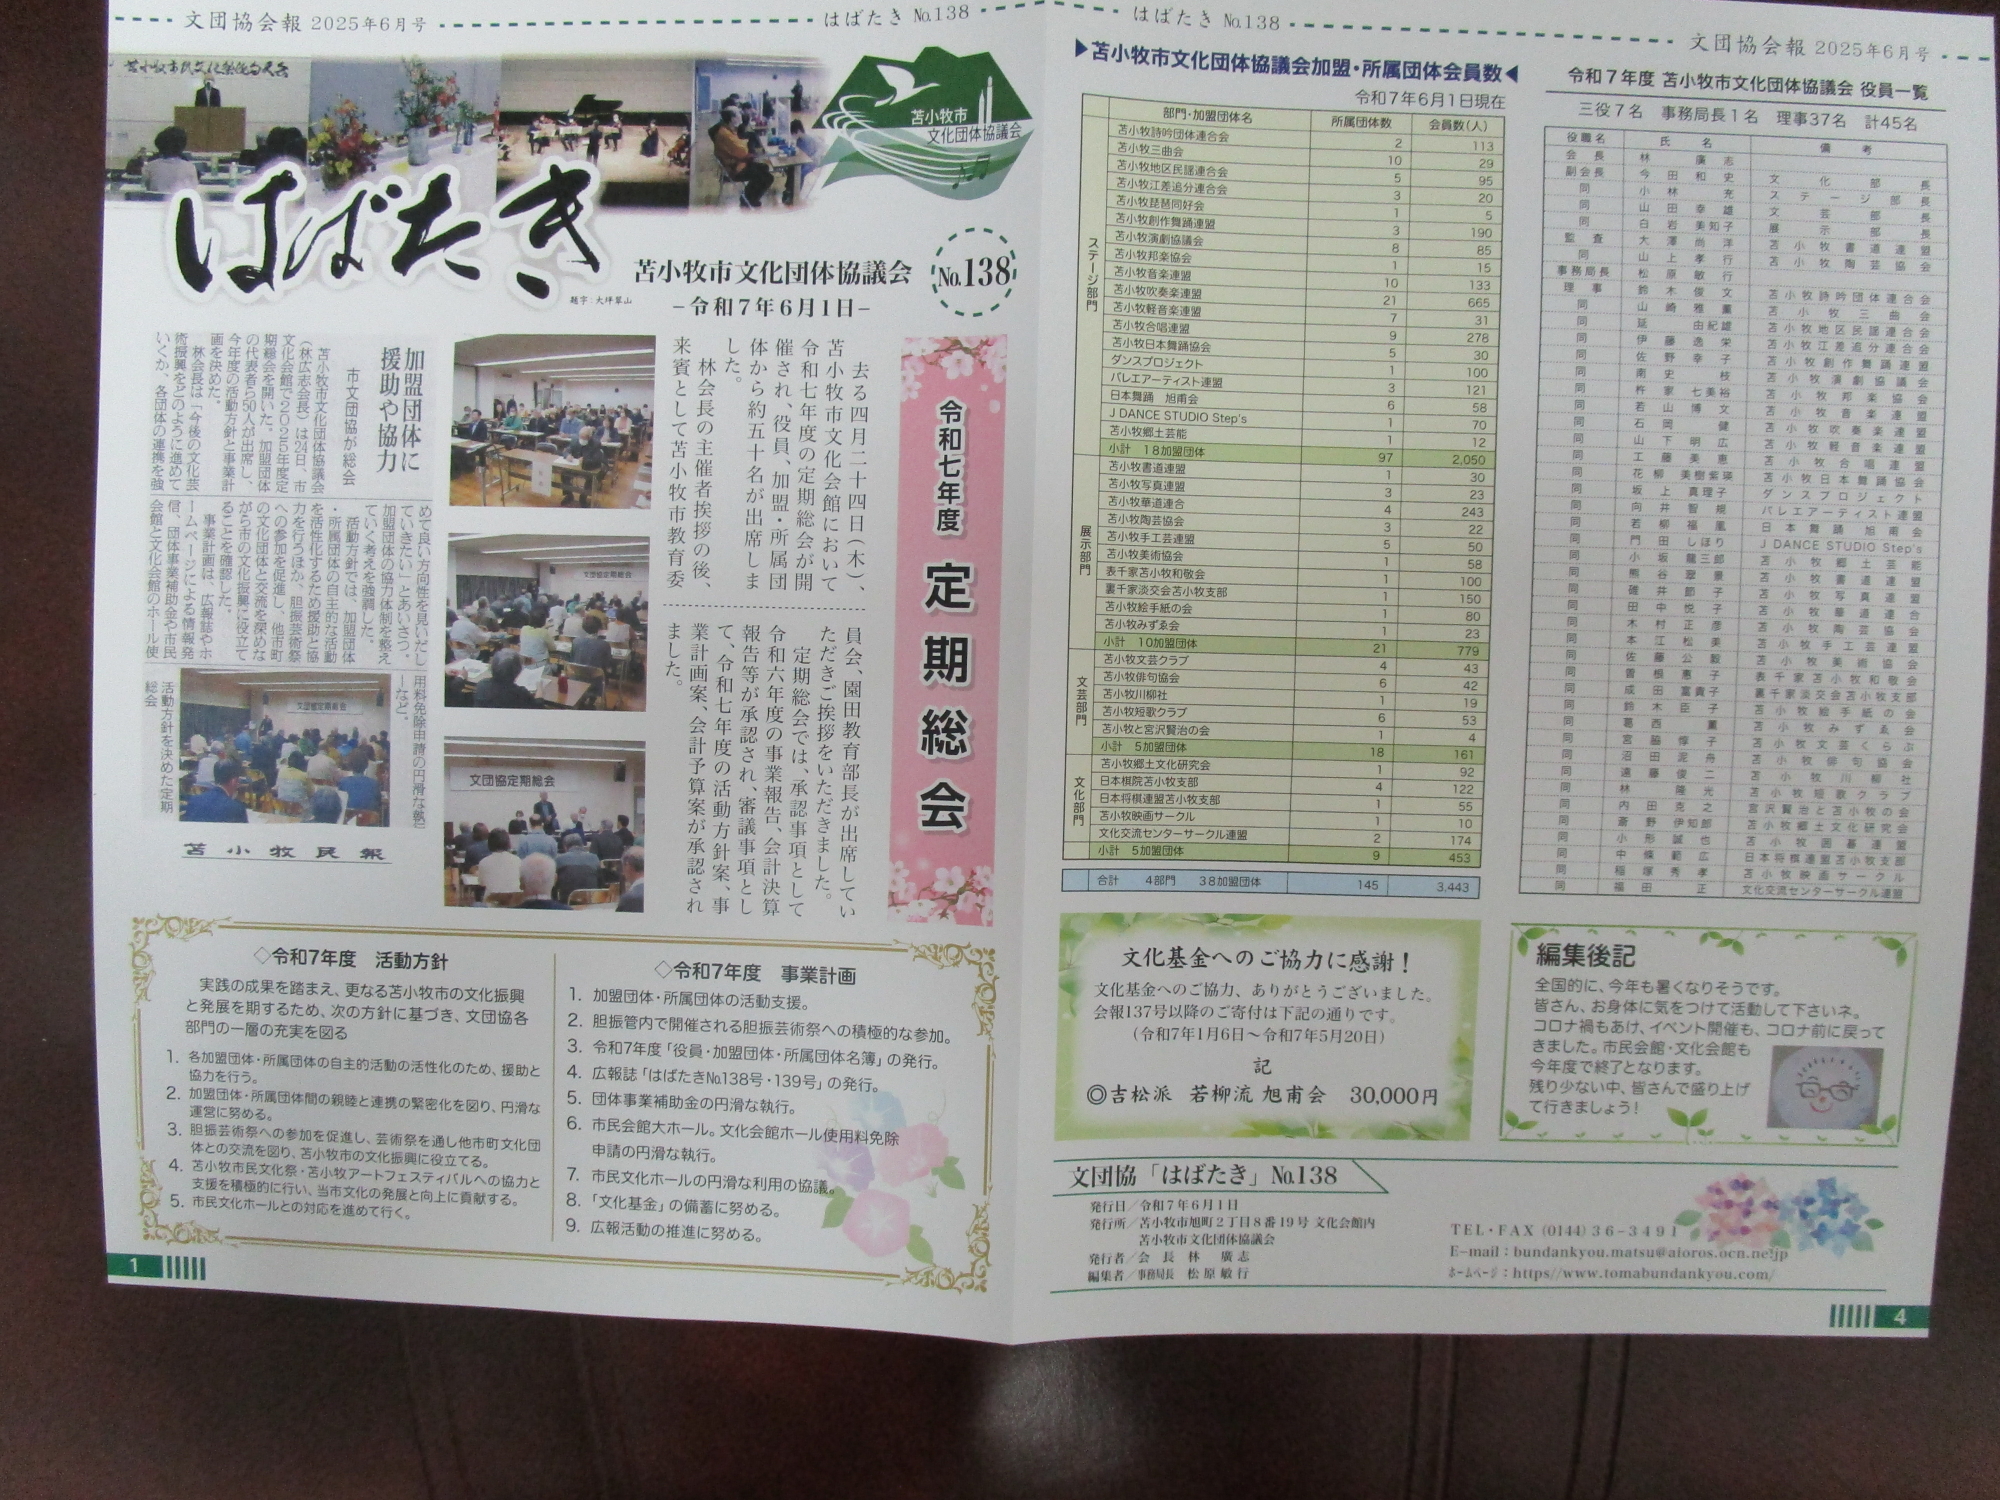 文団協会報 2025年6月号
はばたき №138
苫小牧市
文化団体協議会
はばたき
題字：大坪草山
苫小牧市文化団体協議会
No.138
−令和7年6月1日−
令和七年度 定期総会
去る四月二十四日（木）、
苫小牧市文化会館において
令和七年度の定期総会が開
催され、役員、加盟・所属団
体から約五十名が出席しま
した。
林会長の主催者挨拶の後、
来賓として苫小牧市教育委
員会、園田教育部長が出席してい
ただきご挨拶をいただきました。
定期総会では、承認事項として
令和六年度の事業報告、会計決算
報告等が承認され、審議事項とし
て、令和七年度の活動方針案、事
業計画案、会計予算案が承認され
ました。
文団協定期総会
加盟団体に
援助や協力
市文団協が総会
苫小牧市文化団体協議会
（林広志会長）は24日、市
文化会館で2025年度定
期総会を開いた。加盟団体
の代表者ら50人が出席し、
今年度の活動方針と事業計
画を決めた。
林会長は「今後の文化芸
術振興をどのように進めて
いくか、各団体の連携を強
めて良い方向性を見いだし
ていきたい」とあいさつ。
加盟団体の協力体制を整え
ていく考えを強調した。
活動方針では、加盟団体
・所属団体の自主的な活動
を活性化するため援助と協
力を行うほか、胆振芸術祭
への参加を促進し、他市町
の文化団体と交流を深めな
がら市の文化振興に役立て
ることを確認した。
事業計画は、広報誌やホ
ームページによる情報発
信、団体事業補助金や市民
会館と文化会館のホール使
用料免除申請の円滑な執行
―など。
活動方針を決めた定期
総会
苫小牧民報
◇令和7年度 活動方針
実践の成果を踏まえ、更なる苫小牧市の文化振興
と発展を期するため、次の方針に基づき、文団協各
部門の一層の充実を図る
1. 各加盟団体・所属団体の自主的活動の活性化のため、援助と
協力を行う。
2. 加盟団体・所属団体間の親睦と連携の緊密化を図り、円滑な
運営に努める。
3. 胆振芸術祭への参加を促進し、芸術祭を通し他市町文化団
体との交流を図り、苫小牧市の文化振興に役立てる。
4. 苫小牧市民文化祭・苫小牧アートフェスティバルへの協力と
支援を積極的に行い、当市文化の発展と向上に貢献する。
5. 市民文化ホールとの対応を進めて行く。
◇令和7年度 事業計画
1. 加盟団体・所属団体の活動支援。
2. 胆振管内で開催される胆振芸術祭への積極的な参加。
3. 令和7年度「役員・加盟団体・所属団体名簿」の発行。
4. 広報誌「はばたき№138号・139号」の発行。
5. 団体事業補助金の円滑な執行。
6. 市民会館大ホール。文化会館ホール使用料免除
申請の円滑な執行。
7. 市民文化ホールの円滑な利用の協議。
8. 「文化基金」の備蓄に努める。
9. 広報活動の推進に努める。
1
はばたき №138
文団協会報 2025年6月号
▶苫小牧市文化団体協議会加盟・所属団体会員数◀
令和7年6月1日現在
部門・加盟団体名 所属団体数 会員数（人）
ステージ部門
苫小牧詩吟団体連合会 2 113
苫小牧三曲会 10 29
苫小牧地区民謡連合会 5 95
苫小牧江差追分連合会 3 20
苫小牧琵琶同好会 1 5
苫小牧創作舞踊連盟 3 190
苫小牧演劇協議会 8 85
苫小牧邦楽協会 1 15
苫小牧音楽連盟 10 133
苫小牧吹奏楽連盟 21 665
苫小牧軽音楽連盟 7 31
苫小牧合唱連盟 9 278
苫小牧日本舞踊協会 5 30
ダンスプロジェクト 1 100
バレエアーティスト連盟 3 121
日本舞踊 旭甫会 6 58
J DANCE STUDIO Step's 1 70
苫小牧郷土芸能 1 12
小計 18加盟団体 97 2,050
展示部門
苫小牧書道連盟 1 30
苫小牧写真連盟 3 23
苫小牧華道連合 4 243
苫小牧陶芸協会 3 22
苫小牧手工芸連盟 5 50
苫小牧美術協会 1 58
表千家苫小牧和敬会 1 100
裏千家淡交会苫小牧支部 1 150
苫小牧絵手紙の会 1 80
苫小牧みずゑ会 1 23
小計 10加盟団体 21 779
文芸部門
苫小牧文芸クラブ 4 43
苫小牧俳句協会 6 42
苫小牧川柳社 1 19
苫小牧短歌クラブ 6 53
苫小牧と宮沢賢治の会 1 4
小計 5加盟団体 18 161
文化部門
苫小牧郷土文化研究会 1 92
日本棋院苫小牧支部 4 122
日本将棋連盟苫小牧支部 1 55
苫小牧映画サークル 1 10
文化交流センターサークル連盟 2 174
小計 5加盟団体 9 453
合計 4部門 38加盟団体 145 3,443
令和7年度 苫小牧市文化団体協議会 役員一覧
三役7名 事務局長1名 理事37名 計45名
役職名 氏名 備考
会長 林 廣志
副会長 今田和史 文化部長
同 小林 充 ステージ部長
同 山田幸雄 文芸部長
同 白岩美知子 展示部長
監査 大澤尚洋 苫小牧書道連盟
同 山上孝行 苫小牧陶芸協会
事務局長 松原敏行
理事 鈴木俊文 苫小牧詩吟団体連合会
同 山崎雅薫 苫小牧三曲会
同 延 由紀雄 苫小牧地区民謡連合会
同 伊藤逸栄 苫小牧江差追分連合会
同 佐野幸子 苫小牧創作舞踊連盟
同 南史 枝 苫小牧演劇協議会
同 杵家七美裕 苫小牧邦楽協会
同 若山博文 苫小牧音楽連盟
同 石岡 健 苫小牧吹奏楽連盟
同 山下明広 苫小牧軽音楽連盟
同 工藤美恵 苫小牧合唱連盟
同 花柳美樹紫瑛 苫小牧日本舞踊協会
同 坂上真理子 ダンスプロジェクト
同 向井智規 バレエアーティスト連盟
同 若柳福凰 日本舞踊旭甫会
同 門田しほり J DANCE STUDIO Step's
同 小坂龍三郎 苫小牧郷土芸能
同 熊谷 苫小牧書道連盟
同 碓井節子 苫小牧写真連盟
同 田中悦子 苫小牧華道連合
同 木村正彦 苫小牧陶芸協会
同 本江松美 苫小牧手工芸連盟
同 佐藤公毅 苫小牧美術協会
同 曽根惠子 表千家苫小牧和敬会
同 成田富貴子 裏千家淡交会苫小牧支部
同 鈴木臣子 苫小牧絵手紙の会
同 葛西 薫 苫小牧みずゑ会
同 宮脇惇子 苫小牧文芸くらぶ
同 沼田泥舟 苫小牧俳句協会
同 遠藤俊二 苫小牧川柳社
同 林 隆光 苫小牧短歌クラブ
同 内田克之 宮沢賢治と苫小牧の会
同 斎野伊知郎 苫小牧郷土文化研究会
同 小形誠也 苫小牧囲碁連盟
同 中條範広 日本将棋連盟苫小牧支部
同 稲塚秀孝 苫小牧映画サークル
同 福田 正 文化交流センターサークル連盟
文化基金へのご協力に感謝！
文化基金へのご協力、ありがとうございました。
会報137号以降のご寄付は下記の通りです。
（令和7年1月6日～令和7年5月20日）
記
◎吉松派 若柳流 旭甫会 30,000円
編集後記
全国的に、今年も暑くなりそうです。
皆さん、お身体に気をつけて活動して下さいネ。
コロナ禍もあけ、イベント開催も、コロナ前に戻って
きました。市民会館・文化会館も
今年度で終了となります。
残り少ない中、皆さんで盛り上げ
て行きましょう！
文団協「はばたき」№138
発行日／令和7年6月1日
発行所／苫小牧市旭町2丁目8番19号 文化会館内
苫小牧市文化団体協議会
発行者／会長 林 廣志
編集者／事務局長 松原敏行
TEL・FAX（0144）36-3491
E-mail：bundankyou.matsu@aioros.ocn.ne.jp
ホームページ：https//www.tomabundankyou.com/
4